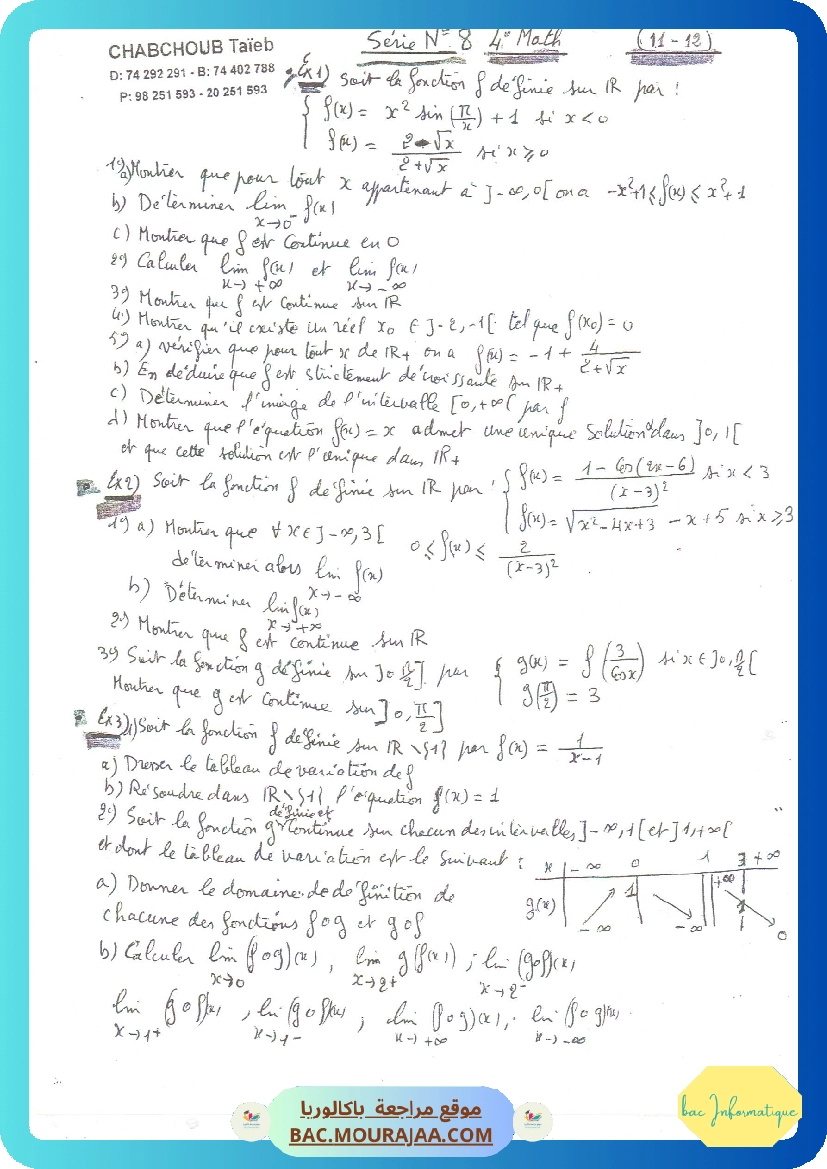 CHABCHOUB Taïeb
D: 74 292 291 - B: 74 402 788
P: 98 251 593 - 20 251 593
Série N° 8 4° Math (11-12)
Ex1) Soit la fonction f définie sur IR par :
{ f(x) = x² sin(π/x) + 1 si x < 0
f(x) = (2-√x)/(2+√x) si x ≥ 0
1°) a) Montrer que pour tout x appartenant à ]-∞,0[ on a -x²+1 ≤ f(x) ≤ x²+1
b) Déterminer lim f(x) x→0⁻
c) Montrer que f est continue en 0
2°) Calculer lim f(x) x→+∞ et lim f(x) x→-∞
3°) Montrer que f est continue sur IR
4°) Montrer qu'il existe un réel x₀ ∈ ]-2,-1[ tel que f(x₀) = 0
5°) a) vérifier que pour tout x de IR+ on a f(x) = -1 + 4/(2+√x)
b) En déduire que f est strictement décroissante sur IR+
c) Déterminer l'image de l'intervalle [0,+∞[ par f
d) Montrer que l'équation f(x) = x admet une unique solution α dans ]0,1[
et que cette solution est l'unique dans IR+
Ex2) Soit la fonction f définie sur IR par : { f(x) = (1 - Cos(2x-6))/(x-3)² si x < 3
f(x) = √(x²-4x+3) - x + 5 si x ≥ 3
1°) a) Montrer que ∀ x ∈ ]-∞,3[ 0 ≤ f(x) ≤ 2/(x-3)²
déterminer alors lim f(x) x→-∞
b) Déterminer lim f(x) x→+∞
2°) Montrer que f est continue sur IR
3°) Soit la fonction g définie sur ]0,π/2] par { g(x) = f(3/Cosx) si x ∈ ]0,π/2[
g(π/2) = 3
Montrer que g est continue sur ]0,π/2]
Ex3) 1) Soit la fonction f définie sur IR \ {1} par f(x) = 1/(x-1)
a) Dresser le tableau de variation de f
b) Résoudre dans IR \ {1} l'équation f(x) = 1
2°) Soit la fonction g définie et continue sur chacun des intervalles ]-∞,1[ et ]1,+∞[
et dont le tableau de variation est le suivant :
x -∞ 0 1 3 +∞
g(x) -∞ 1 -∞ +∞ 1 0
a) Donner le domaine de définition de
chacune des fonctions fog et gof
b) Calculer lim (fog)(x) x→0, lim g(f(x)) x→2⁺ ; lim (gof)(x) x→2⁻
lim (gof)(x) x→1⁺, lim (gof)(x) x→1⁻ ; lim (fog)(x) x→+∞, lim (fog)(x) x→-∞
موقع مراجعة باكالوريا
BAC.MOURAJAA.COM
bac Informatique